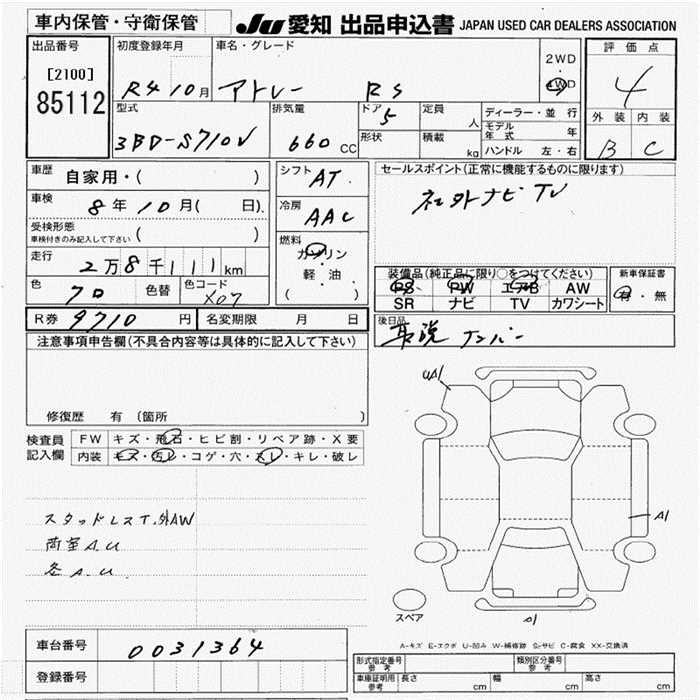 車内保管・守衛保管
JU 愛知 出品申込書 JAPAN USED CAR DEALERS ASSOCIATION
出品番号
[2100]
85112
初度登録年月
R4 10月
車名・グレード
アトレー RS
2WD
・
4WD
評価点
4
外装 内装
B C
型式
3BD-S710V
排気量
660 CC
ドア
5
形状
定員
人
積載
kg
ディーラー・並行
モデル年式 年
ハンドル 左・右
車歴
自家用・( )
車検
8年10月( 日)
受検形態
車検付きのみ記入して下さい ( )
走行
2万8千111km
色
クロ
色替
色コード
X07
シフト
AT
冷房
AAC
燃料
ガソリン
軽・油
( )
セールスポイント(正常に機能するものに限ります)
社外ナビ TV
装備品(純正品に限り○をつけてください)
PS PW エアB AW
SR ナビ TV カワシート
新車保証書
有・無
R券 9710 円
名変期限 月 日
後日品
取説 ナンバー
注意事項申告欄(不具合内容等は具体的に記入して下さい)
修復歴 有 (箇所 )
検査員
記入欄
FW キズ・飛石・ヒビ割・リペア跡・X要
内装 キズ・汚レ・コゲ・穴・スレ・キレ・破レ
スタッドレスT.外AW
荷室A.U
各A.U.
UA1
A1
スペア
A-キズ E-エクボ U-凹み W-補修跡 S-サビ C-腐食 XX-交換済
車台番号
0031364
登録番号
形式指定番号
参考
類別区分番号
参考
車庫証明用
参考
長さ cm
幅 cm
高さ cm